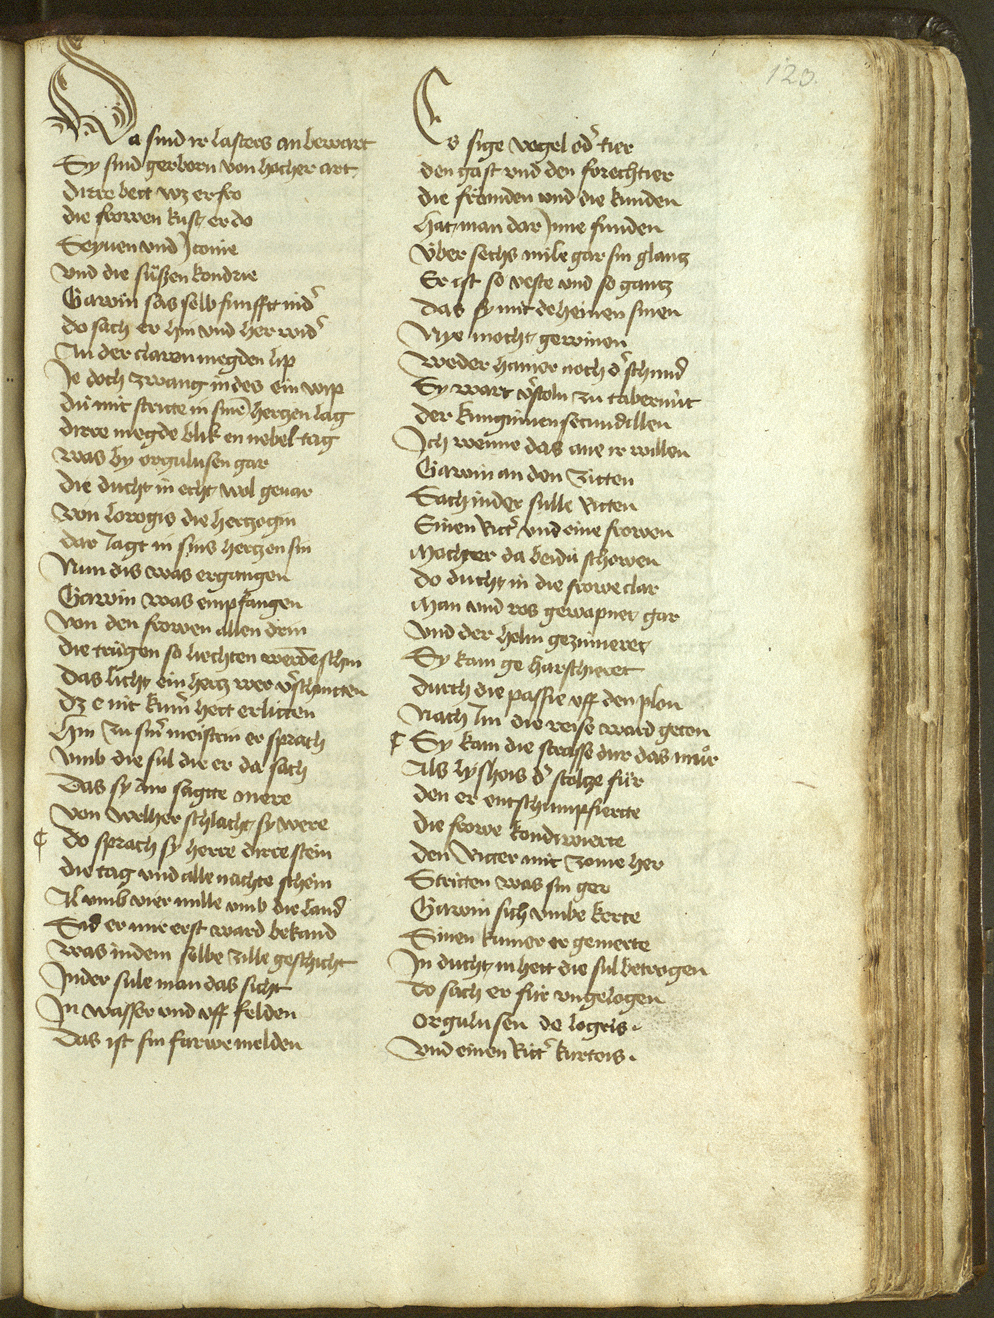 120.
Da sind ir lasters an bewart
Sy sind gerborn von hocher art
dirre bett wz er fro
die frowen kust er do
Seyuen vnd Jtonie
vnd die süssen kondrie
Gawin sas selb funfft nid̉
do sach er hin vnd her wid̉
An der claren megden lip
Je doch zwang in des ein wip
dü mit stritte in sinē hertzen lag
dirre megde blik en nebel tag
was by orgulusen gar
die ducht in echt wol gevar
von Logrogis die hertzogin
dar Jagt in sins hertzen sin
Nun dis was ergangen
Gawin was empfangen
von den frowen allen drin
die trügen so liechten werdē schin
Das licht ein hertz wer v̉schnitten
dz e nit kum̉ hett erlitten
Hin zu sin̉ meistrin er sprach
vmb die sul die er da sach
Das sy im sagtte mere
von welher schlacht sy were
do sprach sy herre dirre stein
die tag vnd alle nachte schein
Al vmb vier mille vmb die land
Sid er mir erst ward bekand
was in dem selbe zille geschicht
Jn der sule man das sicht
Jn wasser vnd vff felden
Das ist sin farwe melden
Es sige vogel od̉ tier
den gast vnd den forechtier
die frömden vnd die kunden
Hat man dar Jnne funden
über sechs mile gar sin glantz
Er ist so veste vnd so gantz
Das sy mit deheinen sinen
Nye mocht gewinen
weder hamer noch d̉ schmid
Sy wart v̉stoln zu tabernüt
der kunginnen secundillen
Jch wenne das ane ir willen
Gawin an den zitten
Sach in der sulle ritten
Einen Ritt̉ vnd eine frowen
Mocht er da beidü schowen
do ducht in die frowe clar
Man vnd ros gewapnet gar
vnd der helm gezimieret
Sy kam ge harschieret
durch die passie vff den plon
Nach Jm die reise ward geton
Sy kam die strasse dur das mür
Als Lyshois d̉ stoltze für
den er entschumpfierte
die frowe kondiwierte
den Ritter mit zome her
Stritten was sin ger
Gawin sich vmbe kerte
Sinen kumer er gemerte
Jn ducht in hett die sul betrogen
do sach er für vngelogen
Orgulusen de logris.
Vnd einen Ritt̉ kurtois.